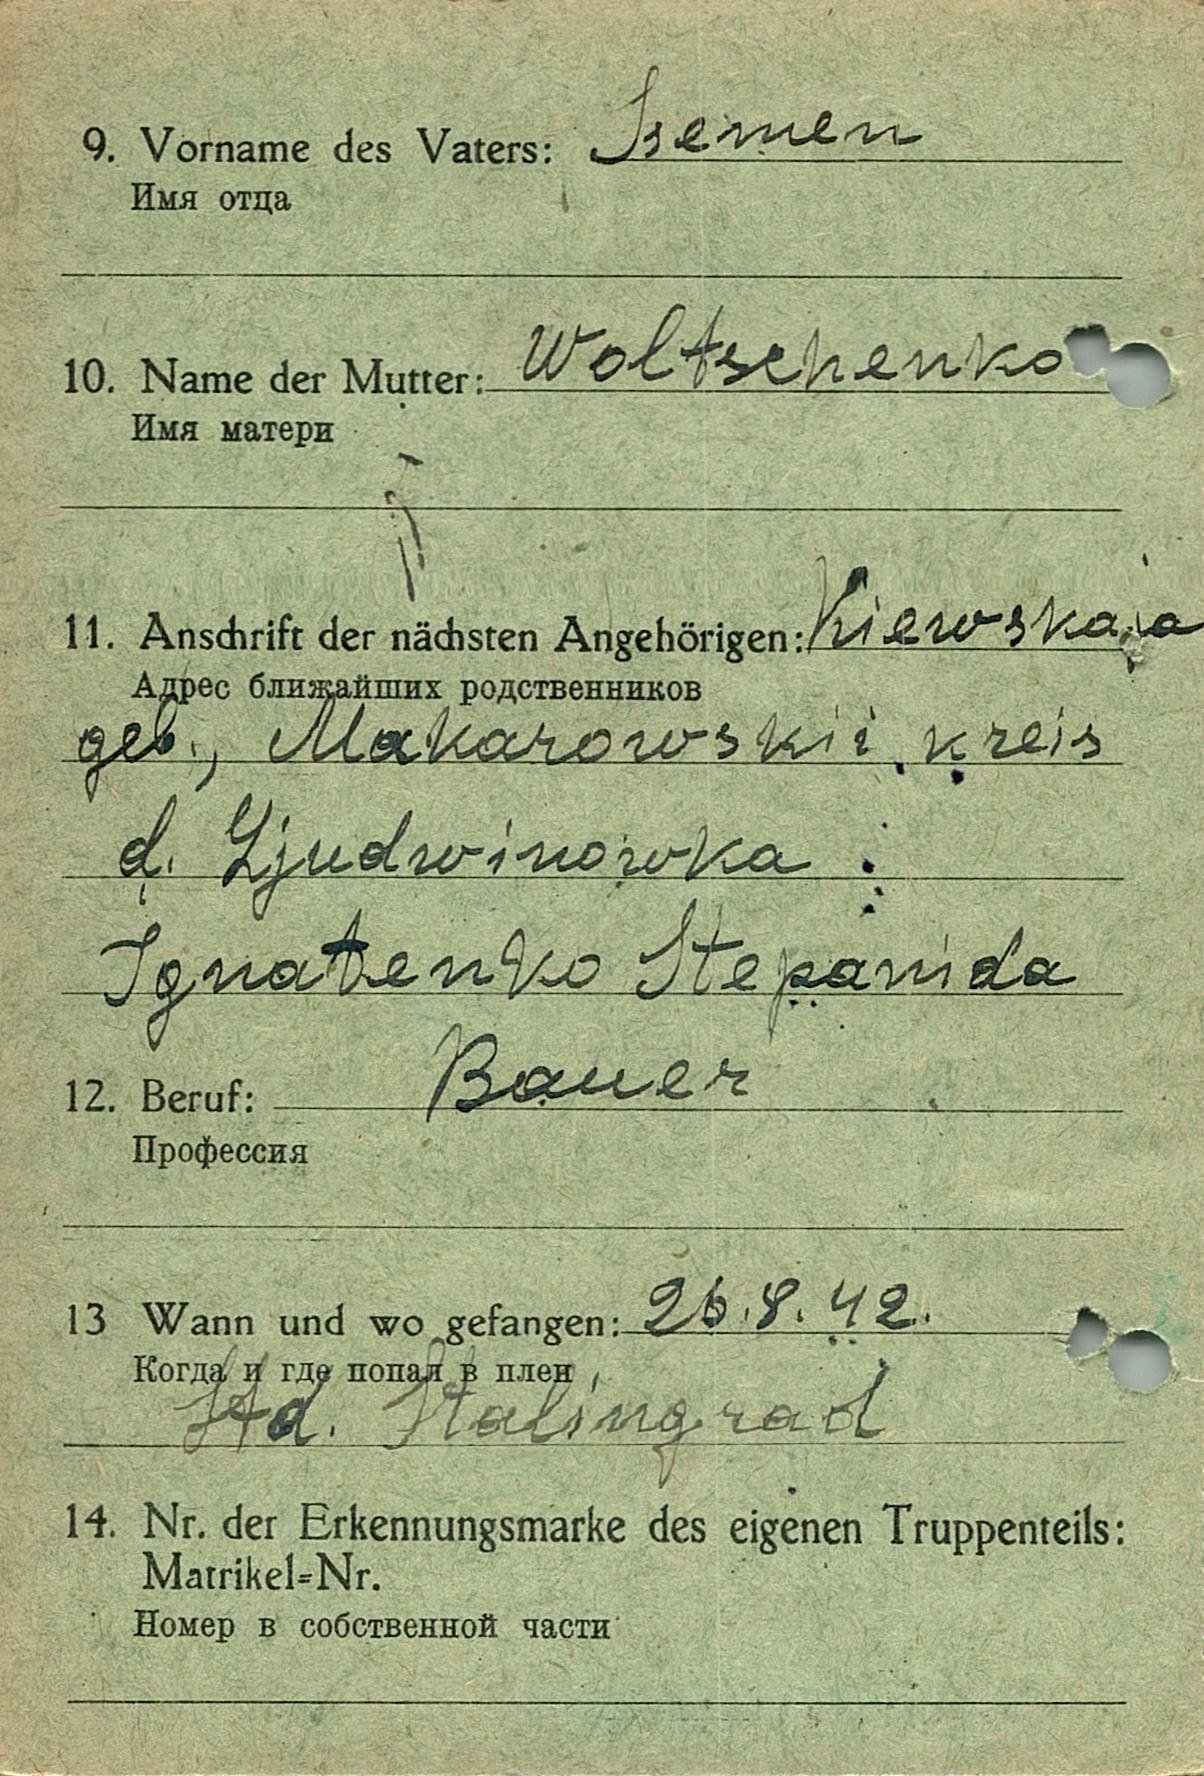 9. Vorname des Vaters: Ssemen
Имя отца
10. Name der Mutter: Woltschenko
Имя матери
11. Anschrift der nächsten Angehörigen: Kiewskaja
Адрес ближайших родственников
geb., Makarowskii kreis
d. Ljudwinowka
Ignatenko Stepanida
12. Beruf: Bauer
Профессия
13 Wann und wo gefangen: 26.8.42.
Когда и где попал в плен
Std. Stalingrad
14. Nr. der Erkennungsmarke des eigenen Truppenteils:
Matrikel=Nr.
Номер в собственной части